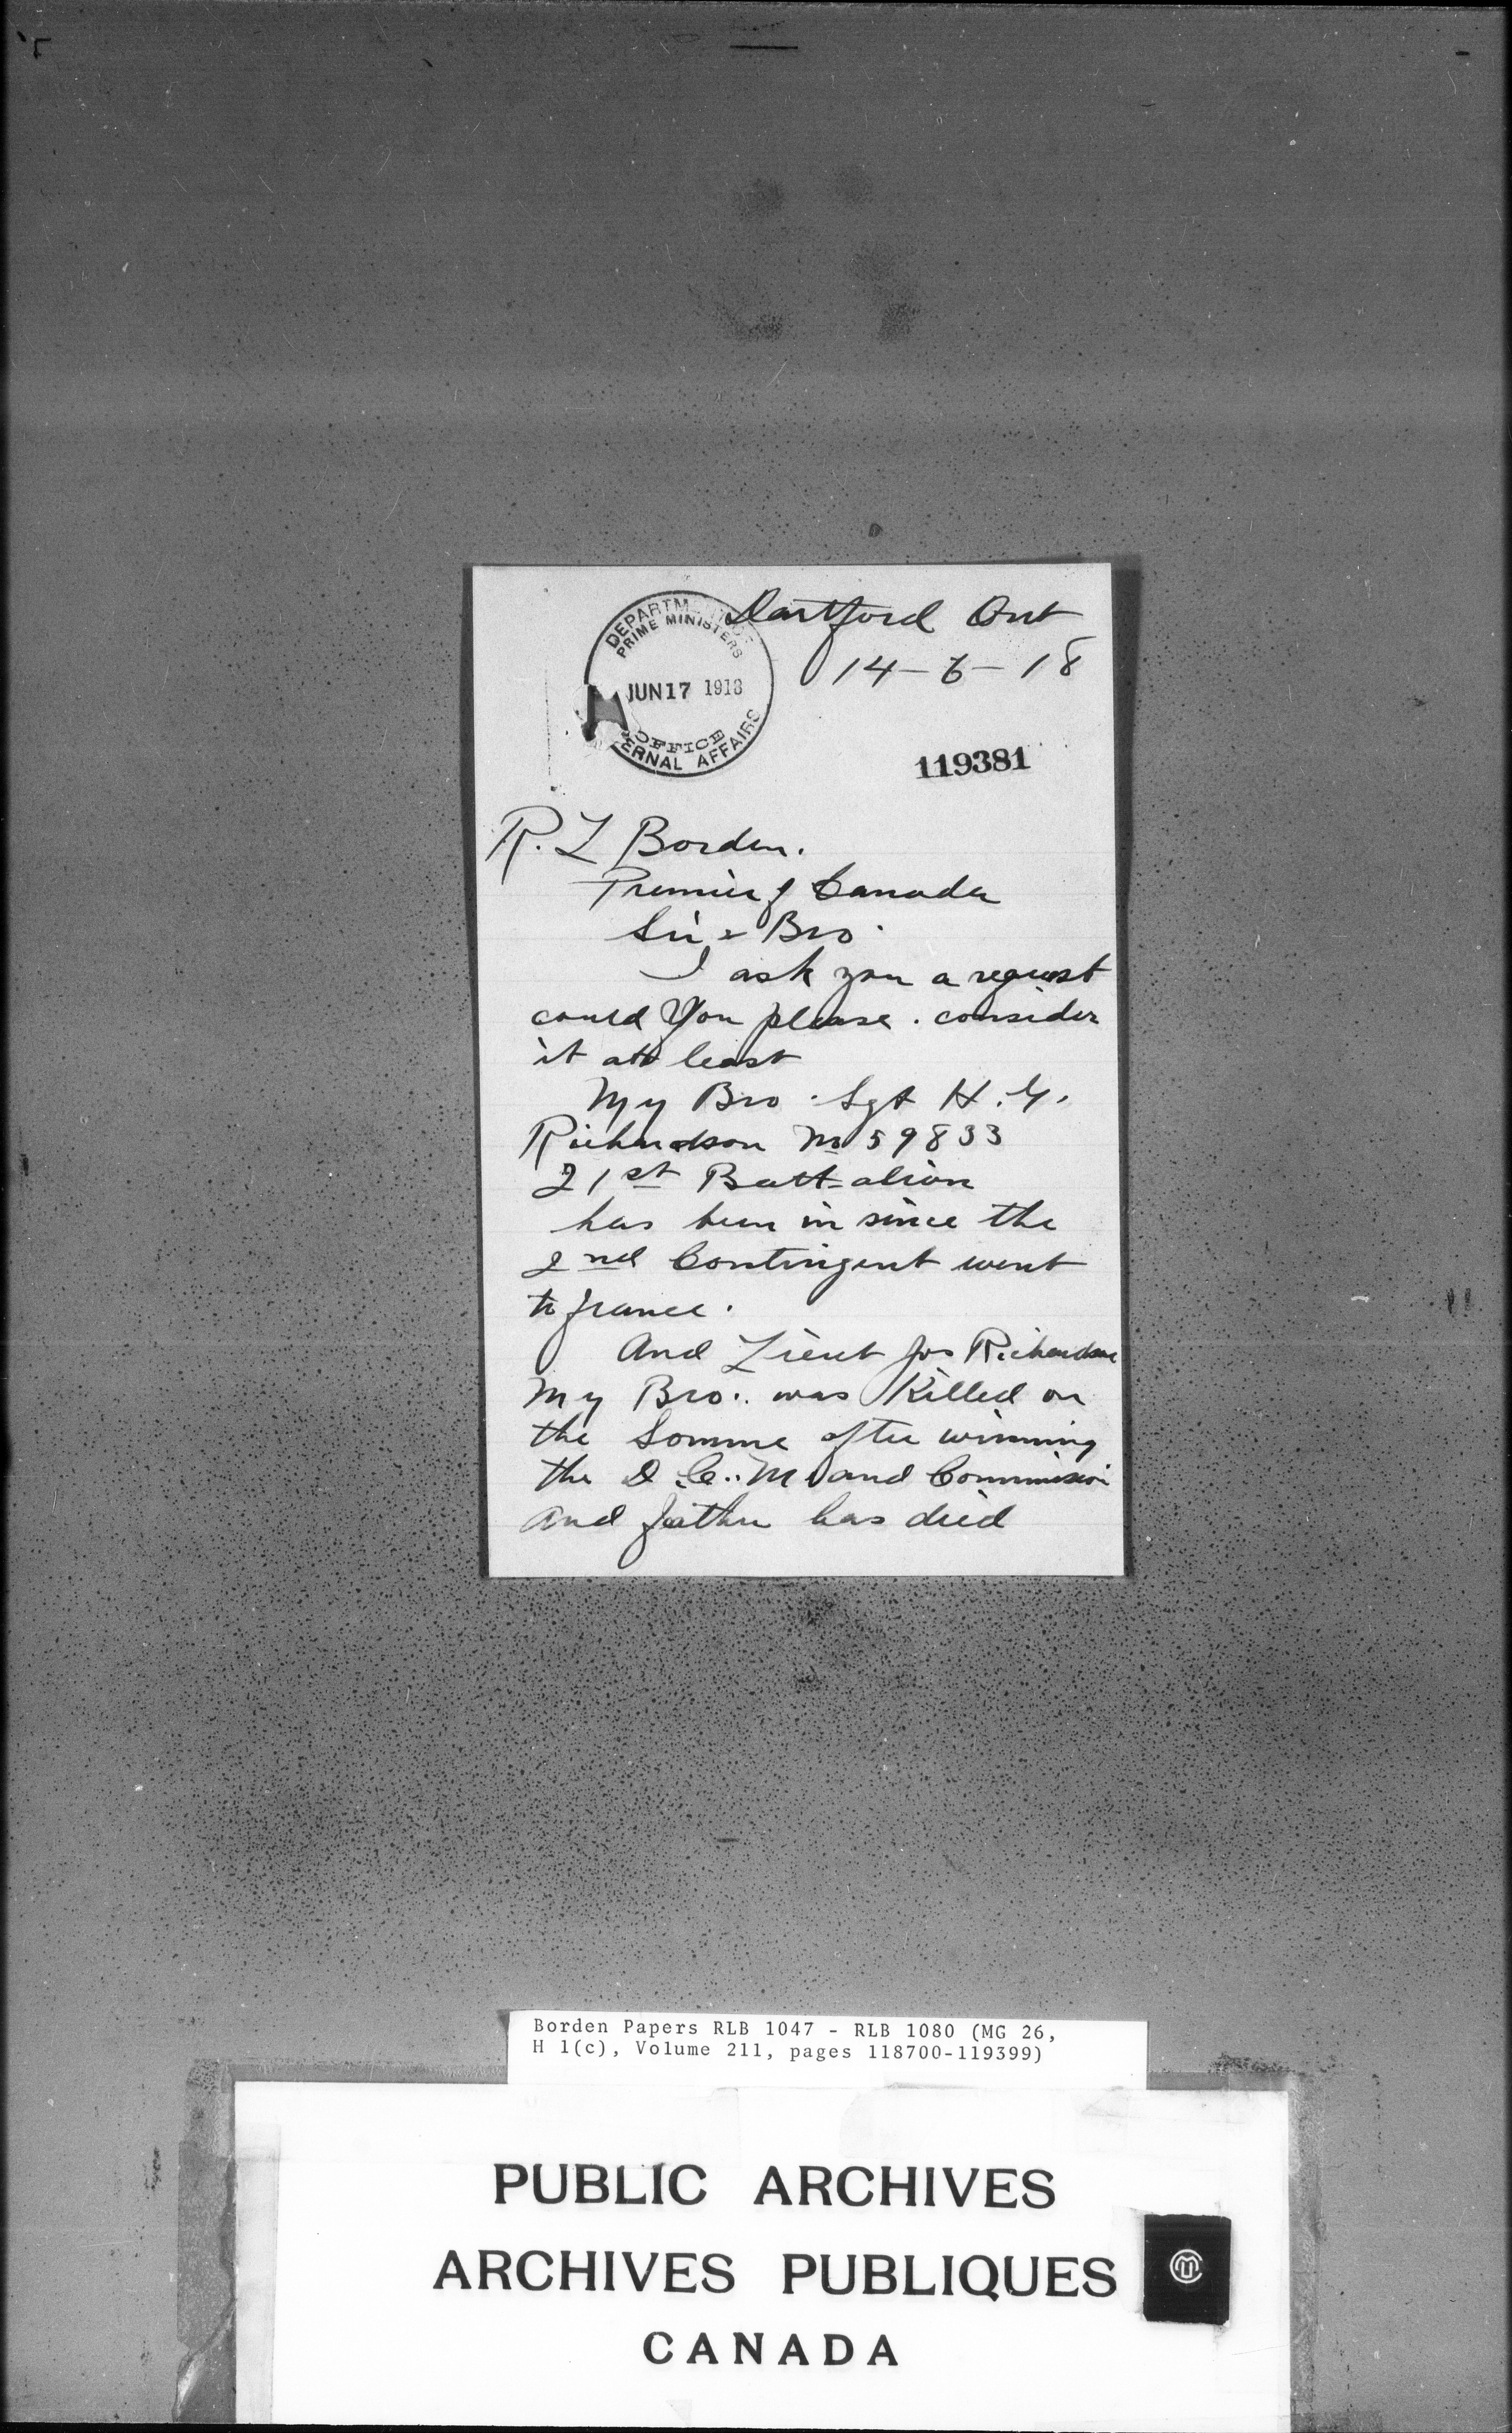 Dartford Ont
14-6-18
DEPARTM
PRIME MINISTERS
JUN 17 1918
OFFICE
ERNAL AFFAIRS
119381
R. L Borden.
Premier of Canada
Sir & Bro.
I ask you a request
could You please. consider
it att least
My Bro. Sgt H. G.
Richardson No 59833
21st Batt-alion
has been in since the
2nd Contingent went
to france.
And Lieut Jos Richardson
My Bro.. was Killed on
the Somme after winning
the D.C..M and Commission
and father has died
Borden Papers RLB 1047 - RLB 1080 (MG 26,
H 1(c), Volume 211, pages 118700-119399)
PUBLIC ARCHIVES
ARCHIVES PUBLIQUES
CANADA